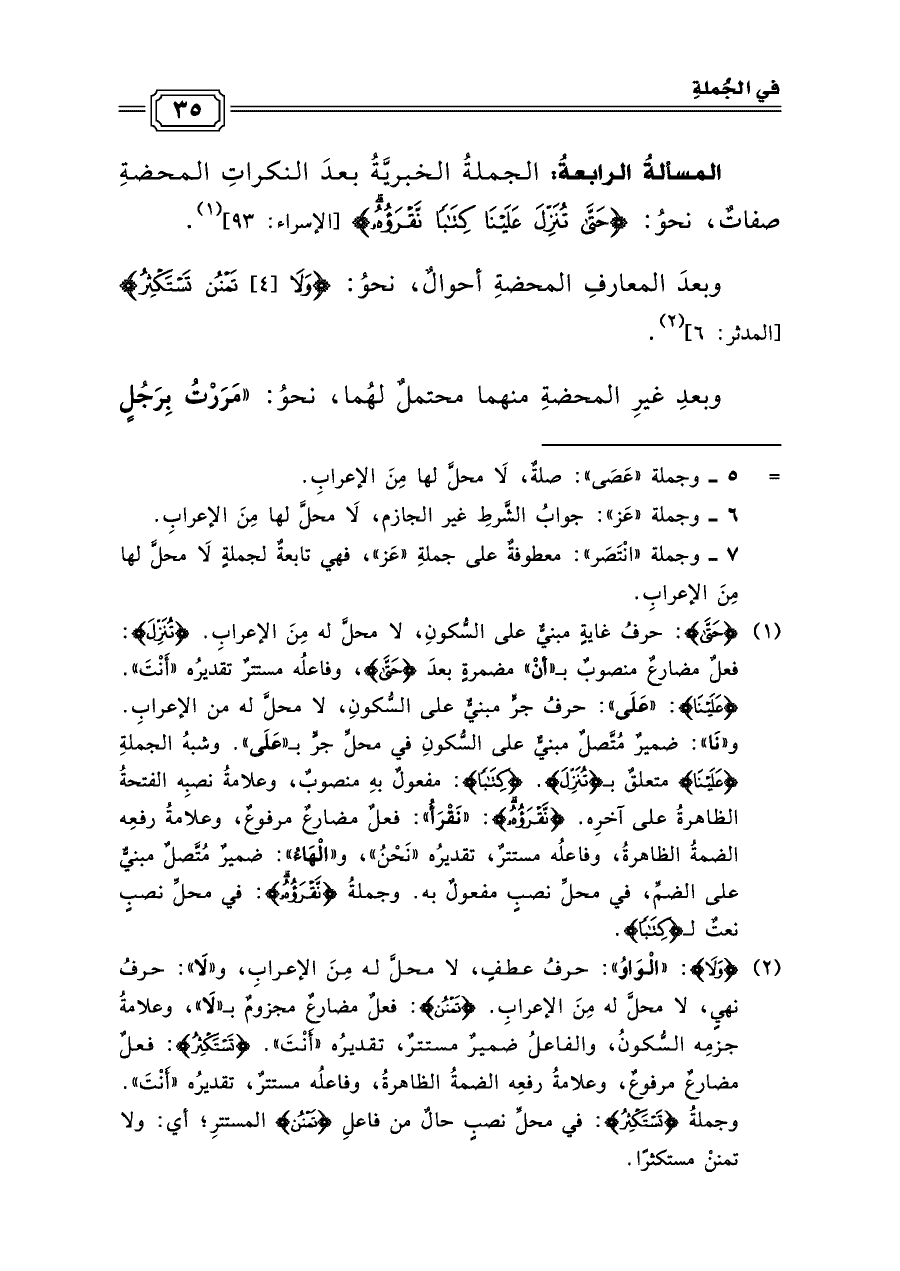 في الجُملةِ
٣٥
المسألةُ الرابعةُ: الجملةُ الخبريَّةُ بعدَ النكراتِ المحضةِ
صفاتٌ، نحوُ: ﴿حَتَّىٰ تُنَزِّلَ عَلَيْنَا كِتَٰبًا نَّقْرَؤُهُۥۗ﴾ [الإسراء: ٩٣](١).
وبعدَ المعارفِ المحضةِ أحوالٌ، نحوُ: ﴿وَلَا [٤] تَمْنُن تَسْتَكْثِرُ﴾
[المدثر: ٦](٢).
وبعدِ غيرِ المحضةِ منهما محتملٌ لهُما، نحوُ: «مَرَرْتُ بِرَجُلٍ
= ٥ ـ وجملة «عَصَى»: صلةٌ، لَا محلَّ لها مِنَ الإعرابِ.
٦ ـ وجملة «عَز»: جوابُ الشَّرطِ غير الجازم، لَا محلَّ لها مِنَ الإعرابِ.
٧ ـ وجملة «انْتَصَر»: معطوفةٌ على جملةِ «عَز»، فهي تابعةٌ لجملةٍ لَا محلَّ لها
مِنَ الإعرابِ.
(١) ﴿حَتَّىٰ﴾: حرفُ غايةٍ مبنيٌّ على السُّكونِ، لا محلَّ له مِنَ الإعرابِ. ﴿تُنَزِّلَ﴾:
فعلٌ مضارعٌ منصوبٌ بـ«أنْ» مضمرةٍ بعدَ ﴿حَتَّىٰ﴾، وفاعلُه مستترٌ تقديرُه «أَنْتَ».
﴿عَلَيْنَا﴾: «عَلَى»: حرفُ جرٍّ مبنيٌّ على السكونِ، لا محلَّ له من الإعرابِ.
و«نَا»: ضميرٌ مُتَّصلٌ مبنيٌّ على السُّكونِ في محلِّ جرٍّ بـ«عَلَى». وشبهُ الجملةِ
﴿عَلَيْنَا﴾ متعلقٌ بـ﴿تُنَزِّلَ﴾. ﴿كِتَٰبًا﴾: مفعولٌ بهِ منصوبٌ، وعلامةُ نصبِه الفتحةُ
الظاهرةُ على آخرِه. ﴿نَّقْرَؤُهُۥۗ﴾: «نَقْرَأُ»: فعلٌ مضارعٌ مرفوعٌ، وعلامةُ رفعِه
الضمةُ الظاهرةُ، وفاعلُه مستترٌ، تقديرُه «نَحْنُ»، و«الْهَاءُ»: ضميرٌ مُتَّصلٌ مبنيٌّ
على الضمِّ، في محلِّ نصبٍ مفعولٌ به. وجملةُ ﴿نَّقْرَؤُهُۥۗ﴾: في محلِّ نصبٍ
نعتٌ لـ﴿كِتَٰبًا﴾.
(٢) ﴿وَلَا﴾: «الْوَاوُ»: حرفُ عطفٍ، لا محلَّ له مِنَ الإعرابِ، و«لَا»: حرفُ
نهيٍ، لا محلَّ له مِنَ الإعرابِ. ﴿تَمْنُن﴾: فعلٌ مضارعٌ مجزومٌ بـ«لَا»، وعلامةُ
جزمِه السُّكونُ، والفاعلُ ضميرٌ مستترٌ، تقديرُه «أَنْتَ». ﴿تَسْتَكْثِرُ﴾: فعلٌ
مضارعٌ مرفوعٌ، وعلامةُ رفعِه الضمةُ الظاهرةُ، وفاعلُه مستترٌ، تقديرُه «أَنْتَ».
وجملةُ ﴿تَسْتَكْثِرُ﴾: في محلِّ نصبٍ حالٌ من فاعلِ ﴿تَمْنُن﴾ المستترِ؛ أي: ولا
تمننْ مستكثرًا.